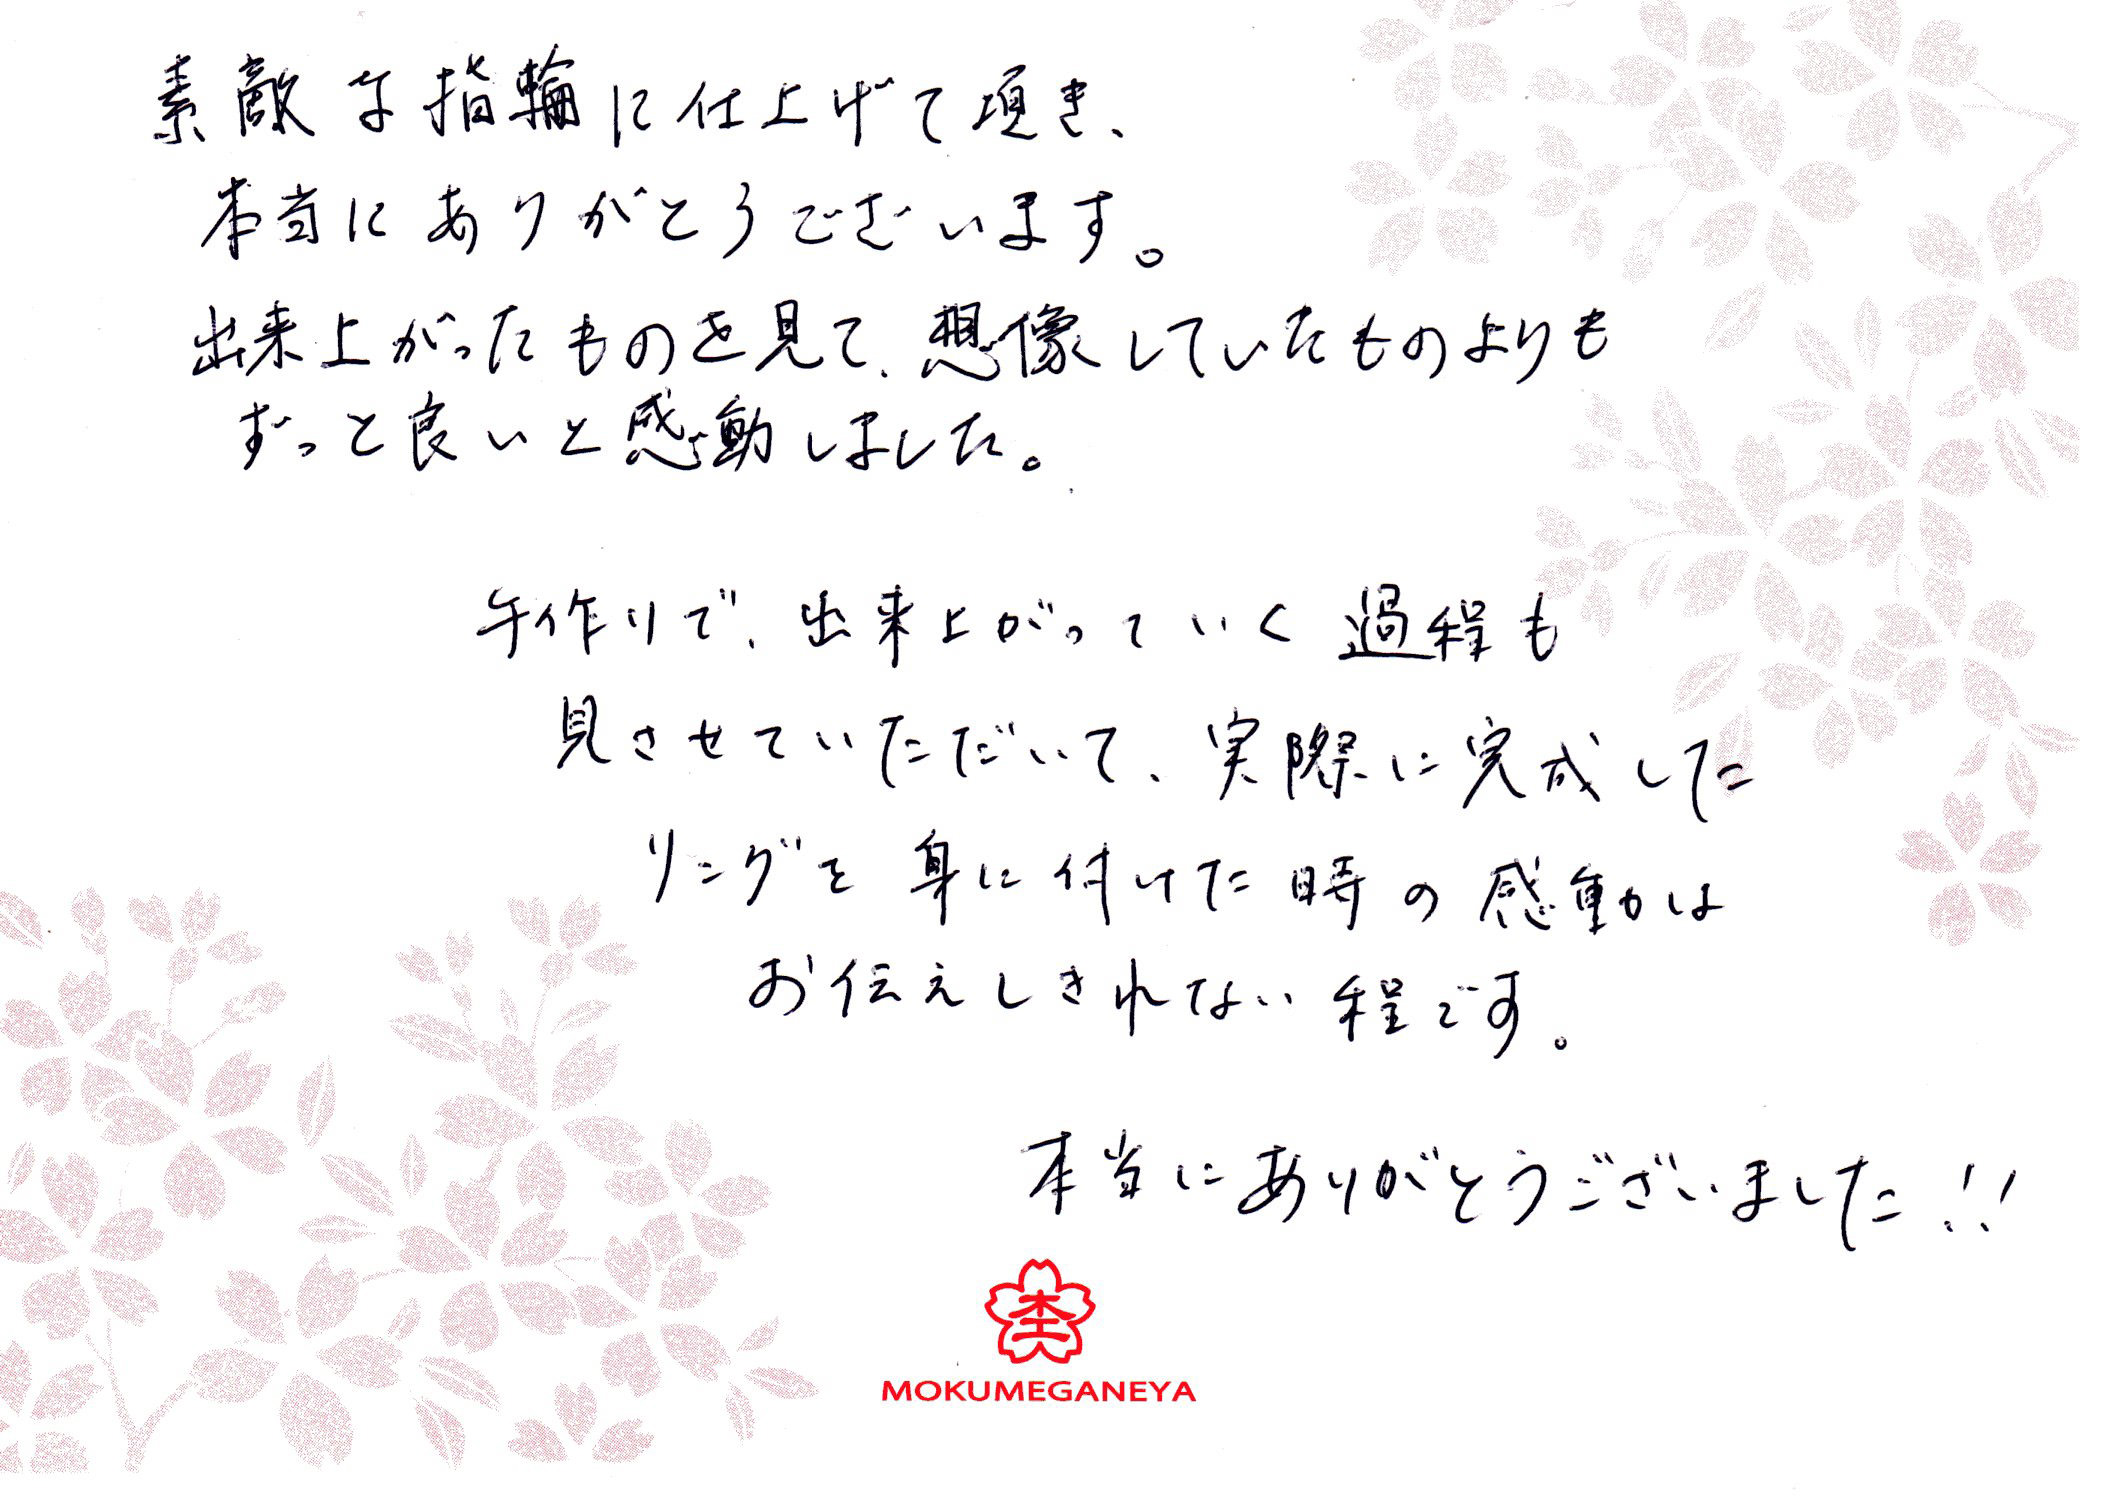 素敵な指輪に仕上げて頂き、
本当にありがとうございます。
出来上がったものを見て、想像していたものよりも
ずっと良いと感動しました。
手作りで、出来上がっていく過程も
見させていただいて、実際に完成した
リングを身に付けた時の感動は
お伝えしきれない程です。
本当にありがとうございました!!
MOKUMEGANEYA